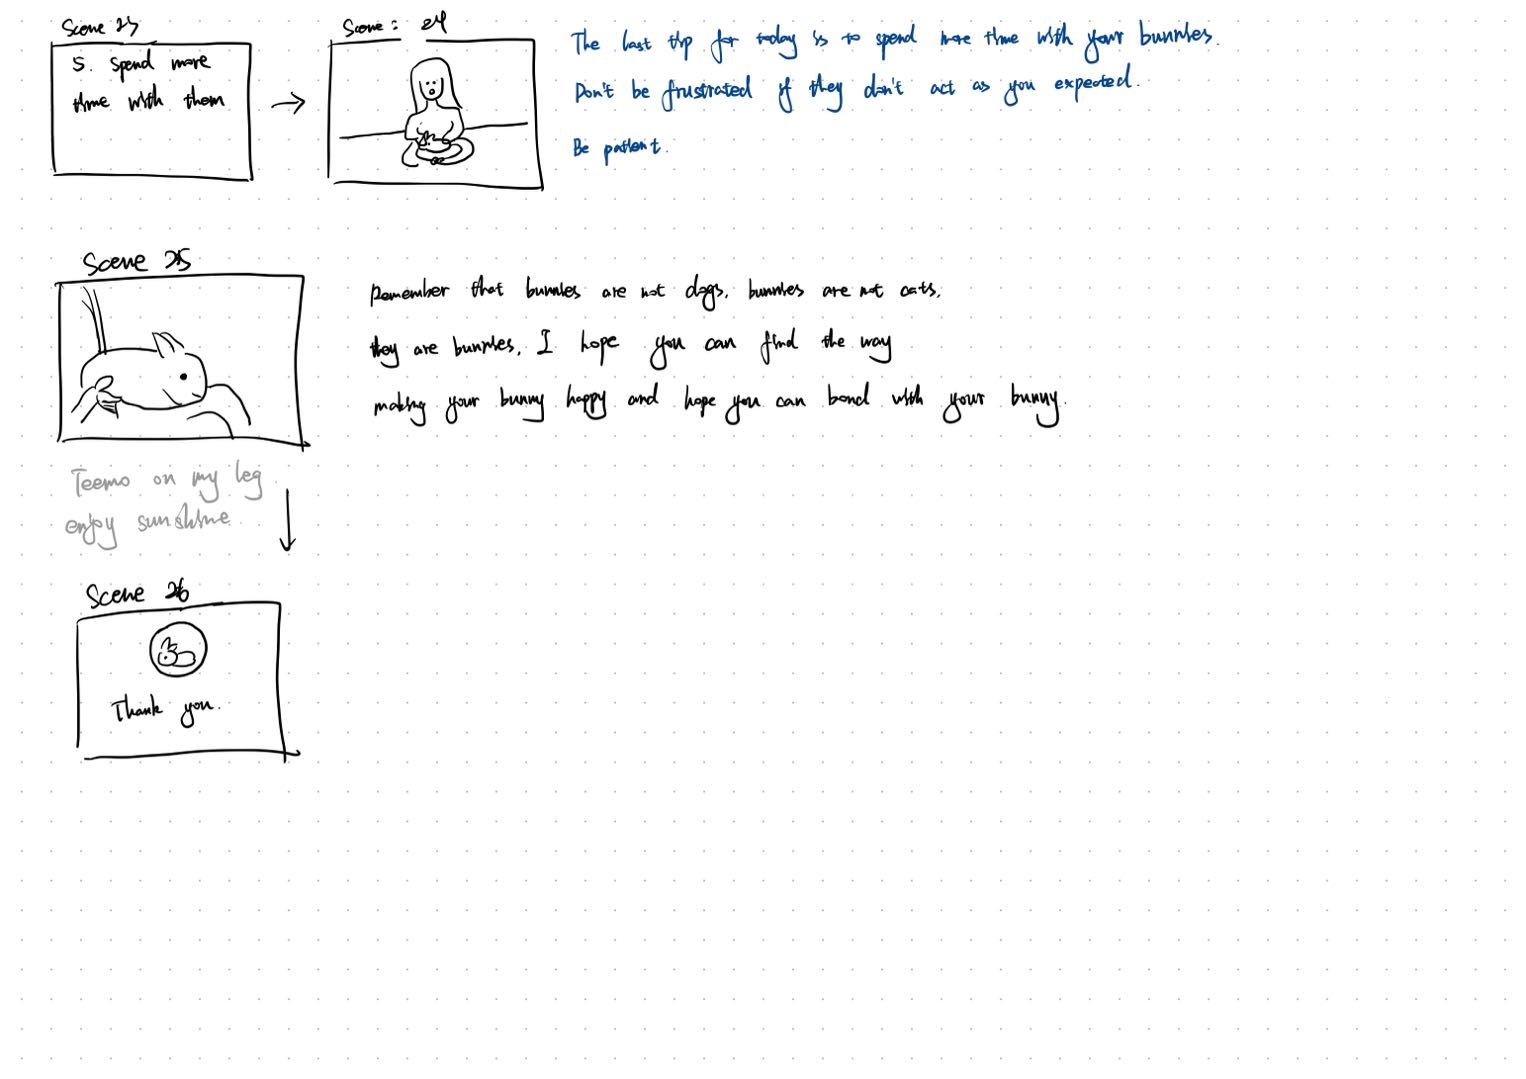 Scene 23
5. Spend more
time with them
Scene: 24
The last tip for today is to spend more time with your bunnies.
Don't be frustrated if they don't act as you expected.
Be patient.
Scene 25
Remember that bunnies are not dogs, bunnies are not cats,
they are bunnies, I hope you can find the way
making your bunny happy and hope you can bond with your bunny.
Teemo on my leg
enjoy sunshine.
Scene 26
Thank you.